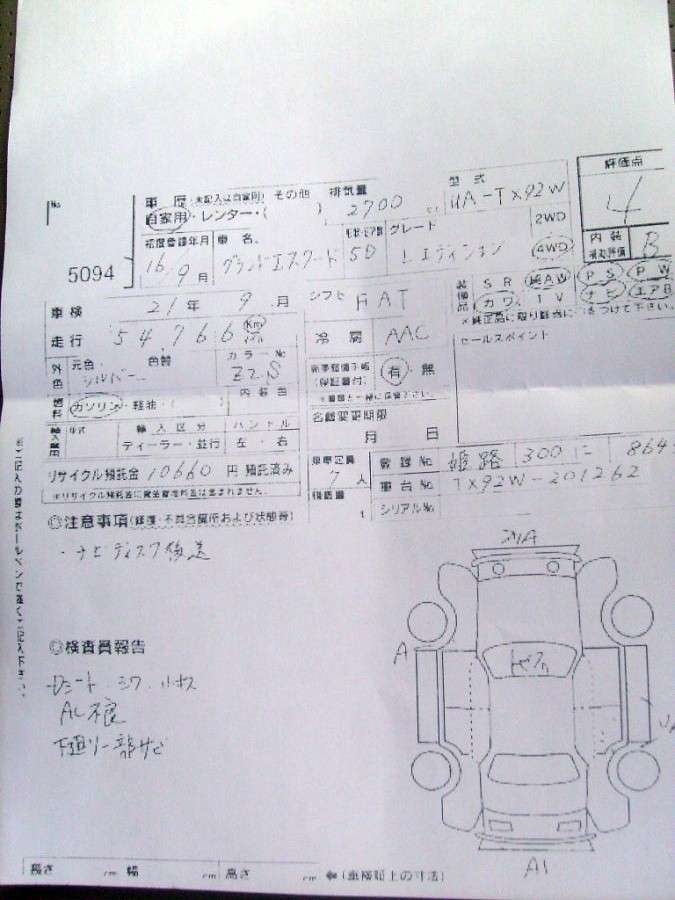 No
5094
車歴 (未記入は自家用) その他 排気量 型式 評価点
自家用・レンター・( ) 2700 cc UA-TX92W 4
初度登録年月 車名 形状・ドア数 グレード 2WD
16年 9月 グランドエスクード 5D Lエディション 4WD 内装 補助評価 B
車検 21年 9月 シフト FAT 装備品 SR 純AW PS PW
カワ TV ナビ エアB
走行 54,766 Km 冷房 AAC ※純正品に限り該当に○をつけて下さい。
外色 元色 シルバー 色替 カラーNo Z2S 新車整備手帳 (保証書付) 有・無 セールスポイント
燃料 ガソリン・軽油・( ) 内装色 ※書類と一緒に保管下さい
輸入車用 年式 輸入区分 ハンドル 名義変更期限
ディーラー・並行 左・右 月 日
リサイクル預託金 10660 円 預託済み 乗車定員 7人 登録No 姫路 300 に 864
※リサイクル預託金に資金管理料金は含まれません。 積載量 t 車台No TX92W-201262
シリアルNo
◎注意事項(修復・不具合箇所および状態等)
・ナビディスク後送
※ご記入の際はボールペンで強くご記入下さい。
◎検査員報告
シート シワ
AC不良
下廻り一部サビ
A
A1
長さ cm 幅 cm 高さ cm (車検証上の寸法)